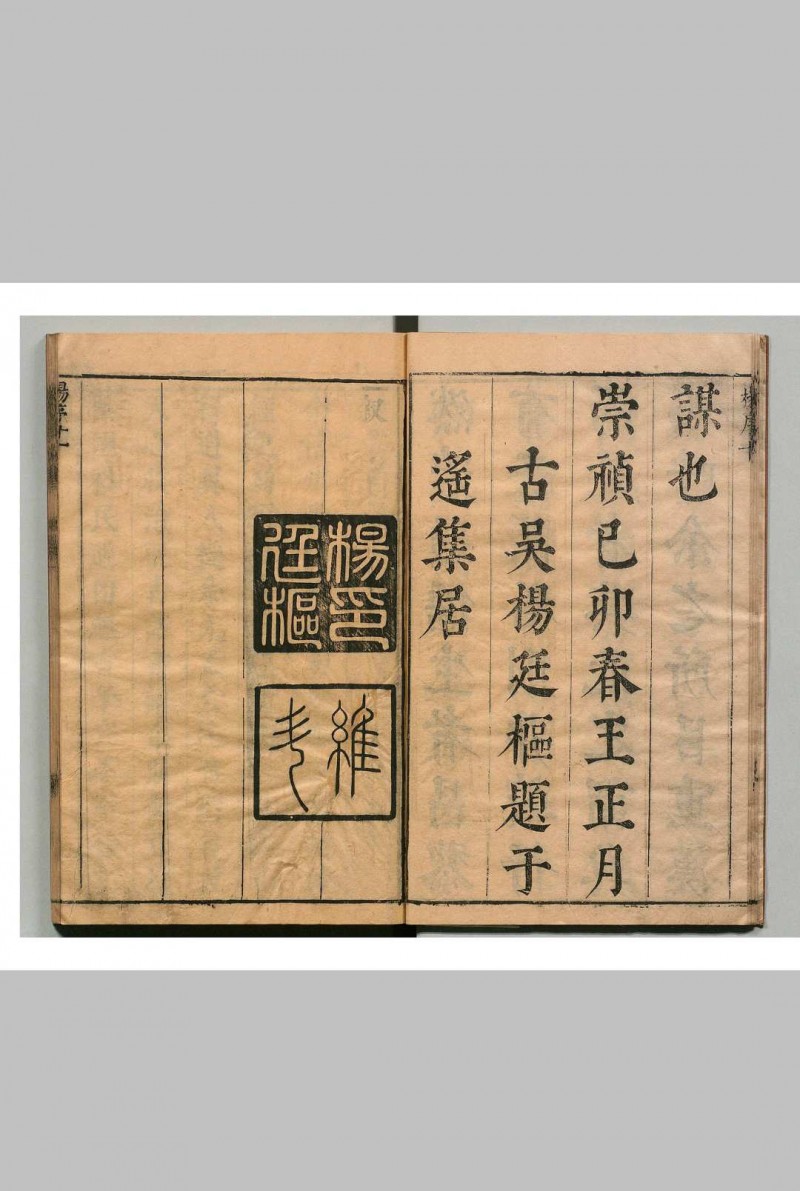 楊序十
謀也
崇禎己卯春王正月
古吳楊廷樞題于
遙集居
楊印
廷樞
維
斗
楊序十一